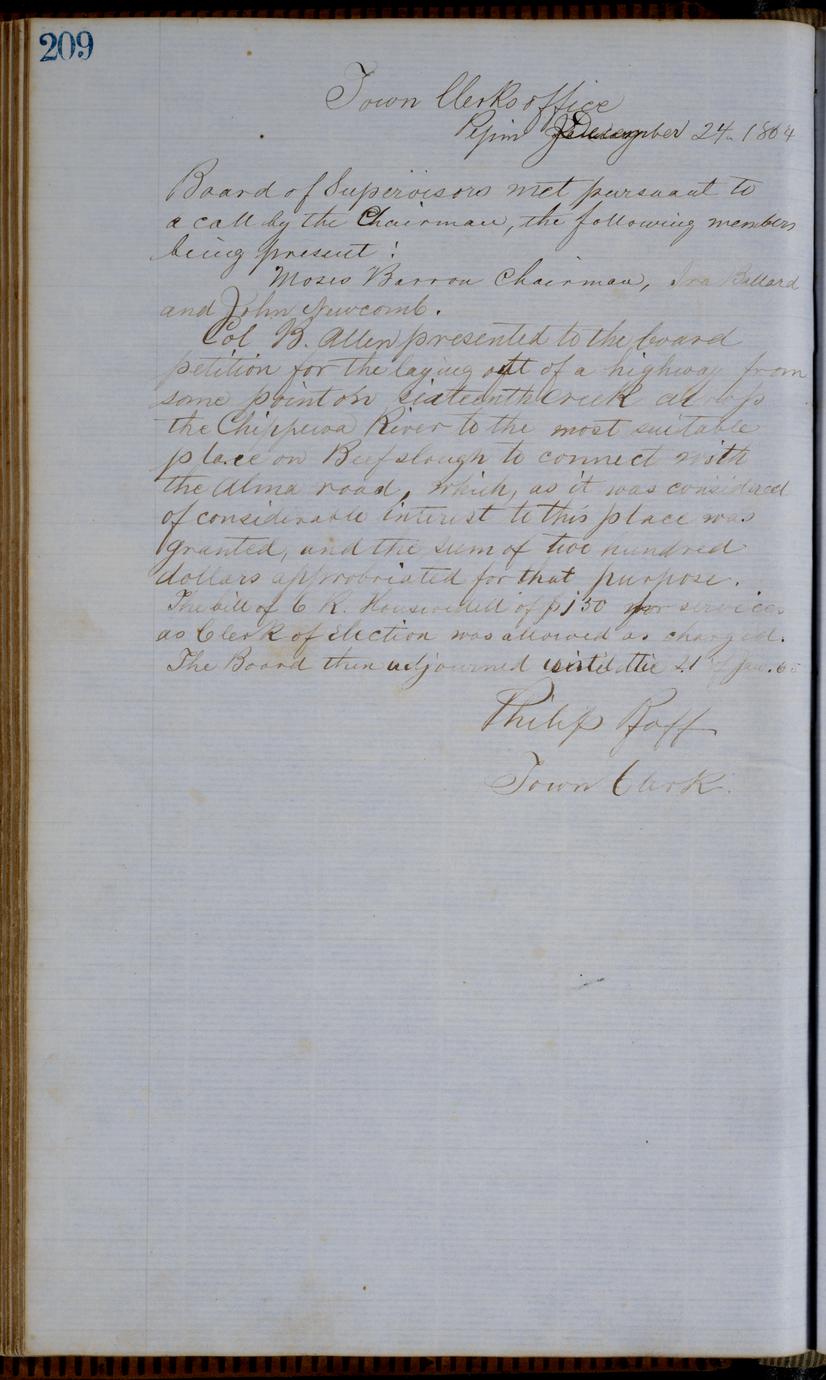 209
Town Clerks office
Pepin December 24. 1864
Board of Supervisors met pursuant to
a call by the Chairman, the following members
being present:
Moses Barron Chairman, Ira Ballard
and John Newcomb.
Col B. Allen presented to the board
petition for the laying out of a highway from
some point on sixteenth creek across
the Chippewa River to the most suitable
place on Beef slough to connect with
the Alma road, which, as it was considered
of considerable interest to this place was
granted, and the sum of two hundred
dollars approbriated for that purpose.
The bill of C R. of $1 50 for services
as Clerk of Election was allowed as charged.
The Board then adjourned until the 21 of Jan. 65
Philip Roff
Town Clerk.